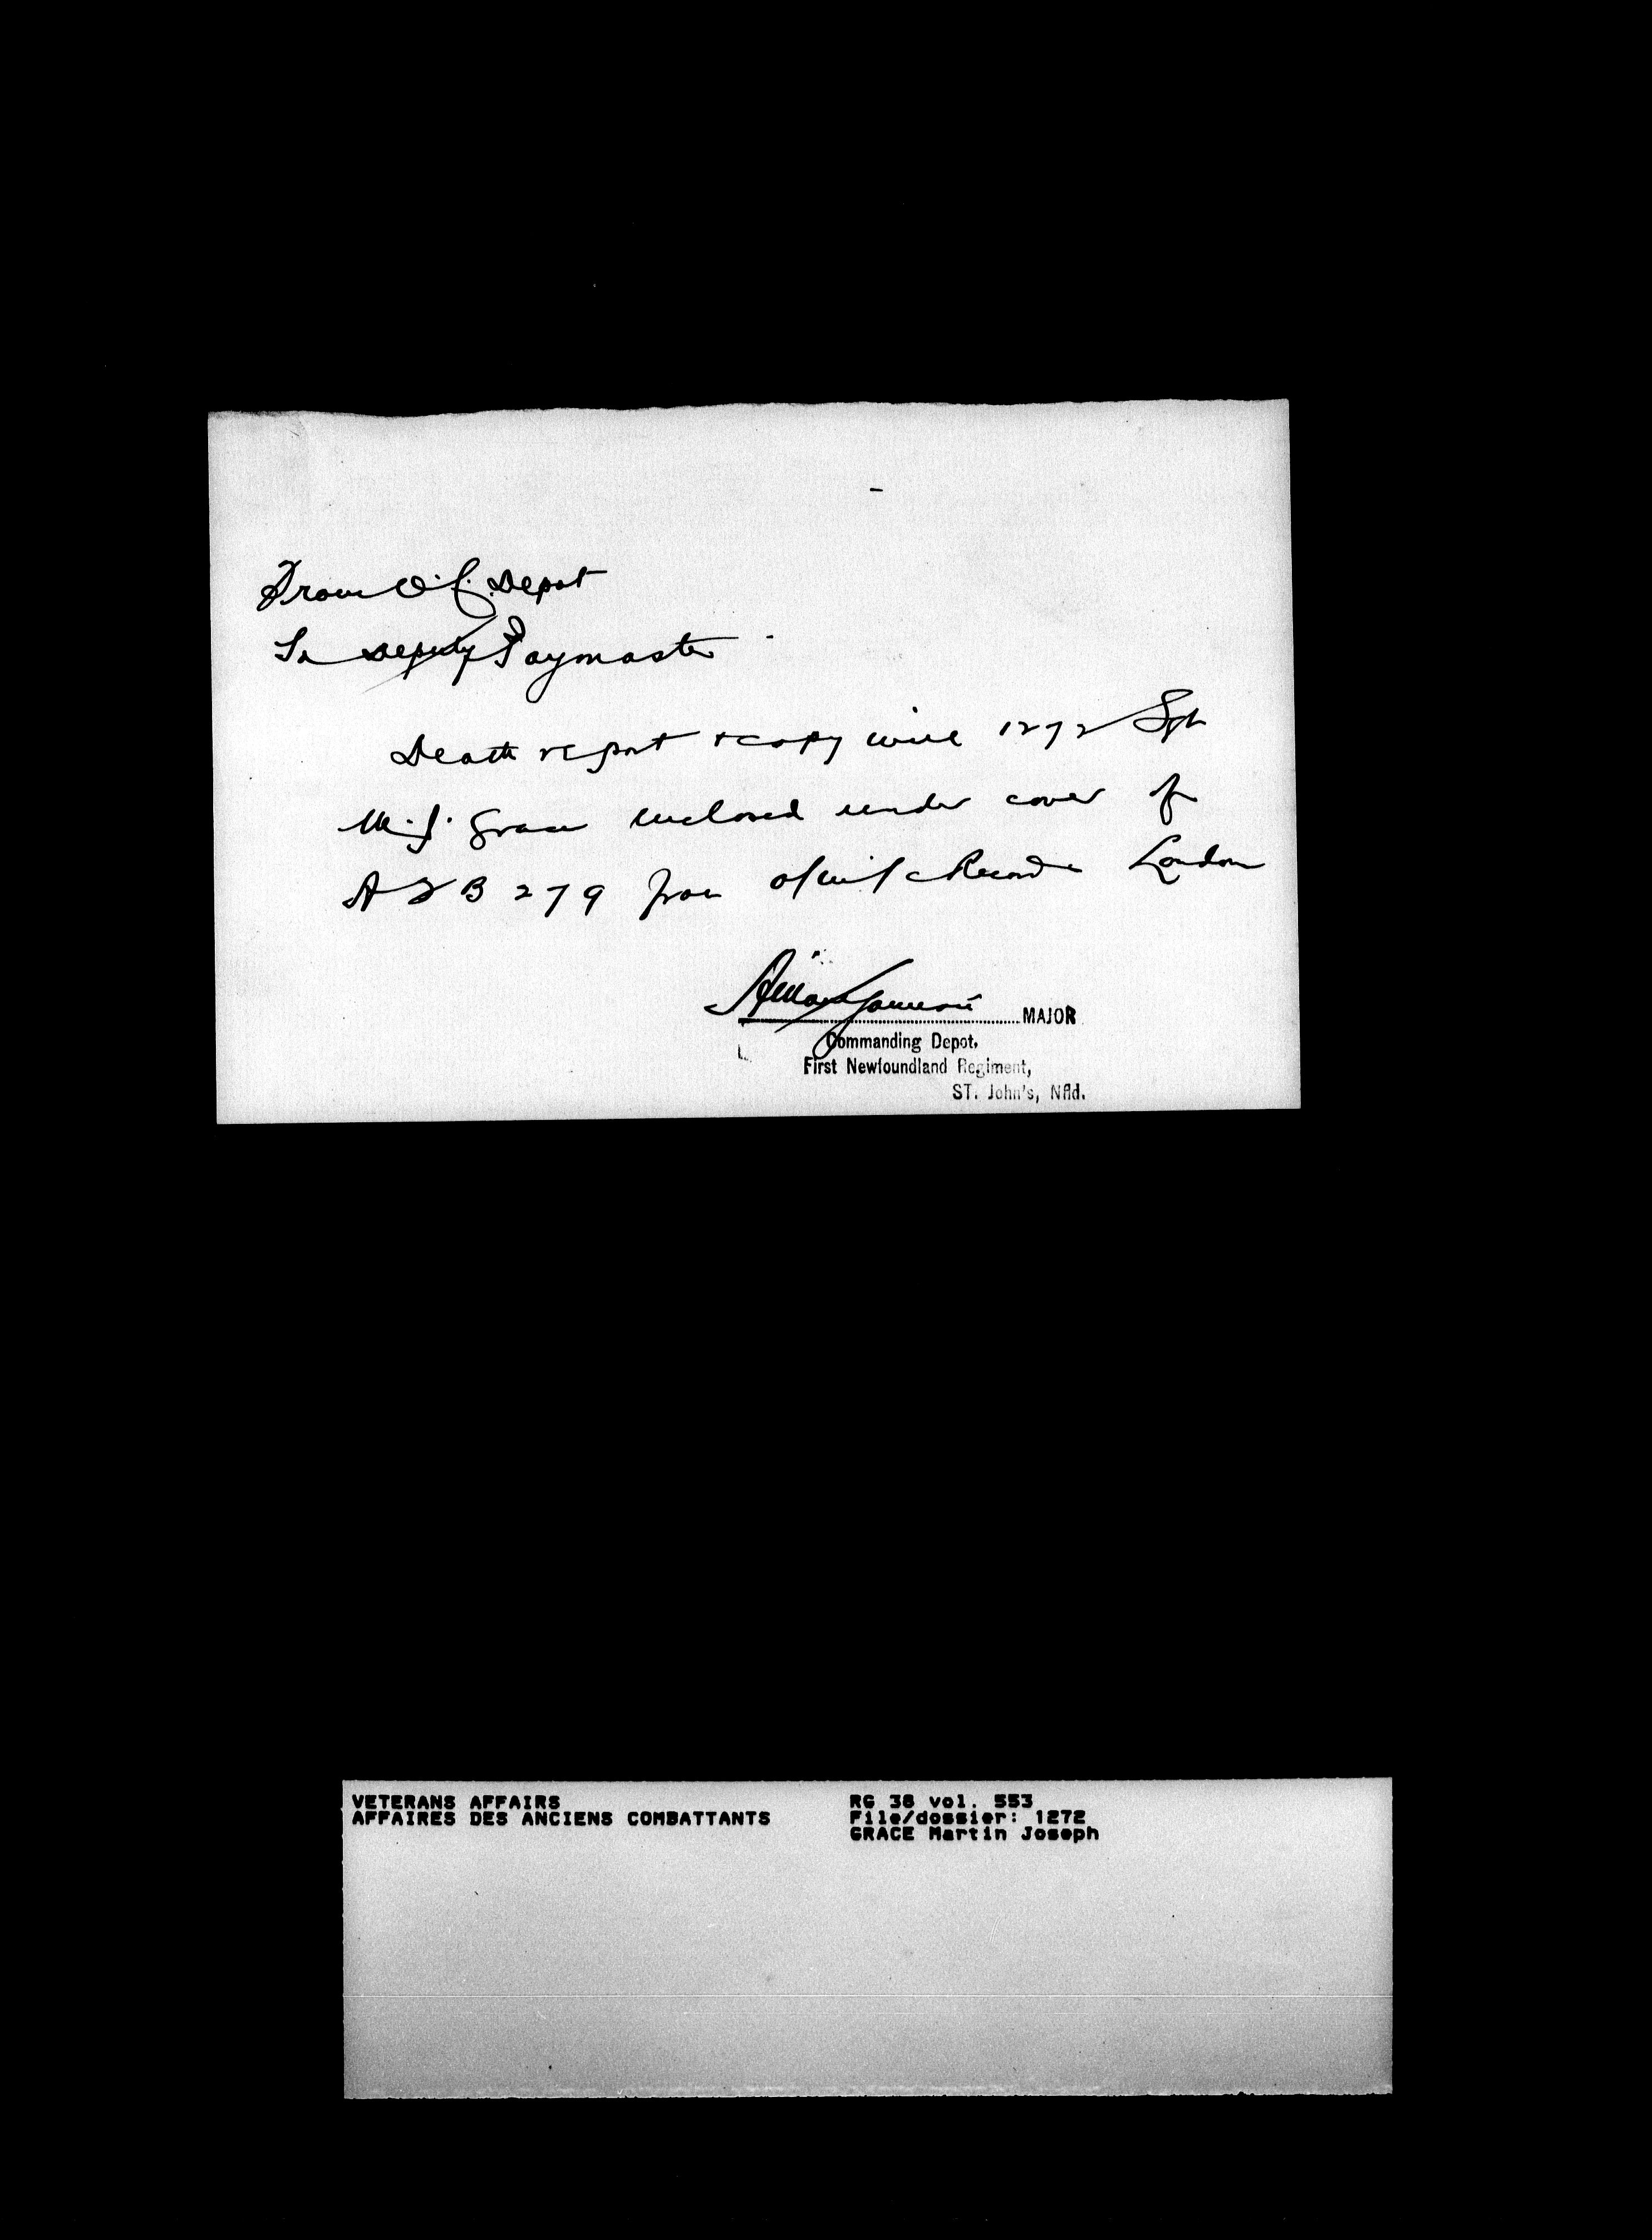 From O.C. Depot
To Deputy Paymaster
Death report & copy will 1272 Sgt
M.J. Grace enclosed under cover of
A F B 279 from o/i/c Records London
MAJOR
Commanding Depot,
First Newfoundland Regiment,
ST. John's, Nfld.
VETERANS AFFAIRS
AFFAIRES DES ANCIENS COMBATTANTS
RG 38 vol. 553
File/dossier: 1272
GRACE Martin Joseph